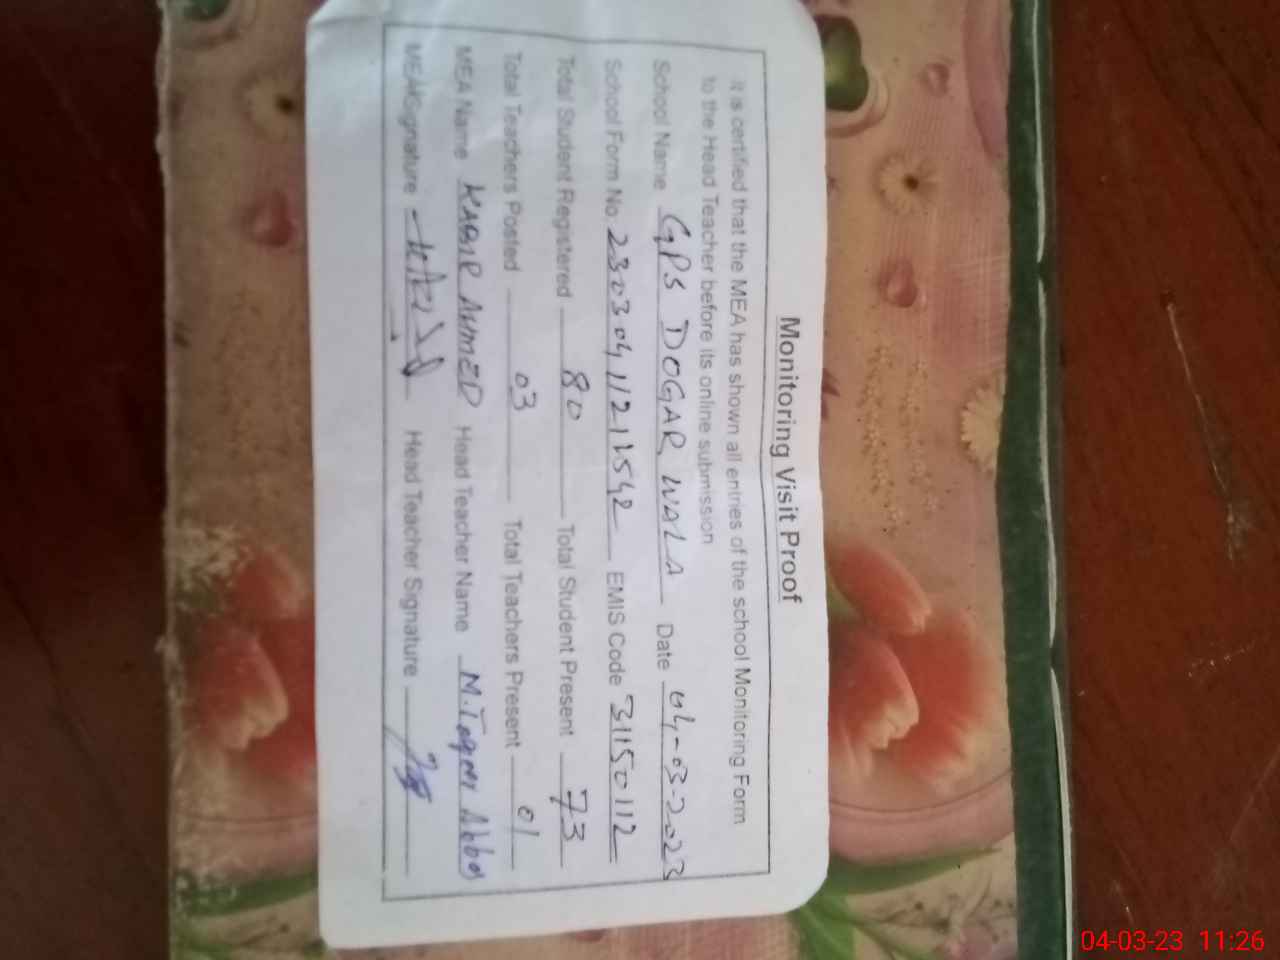 Monitoring Visit Proof
It is certified that the MEA has shown all entries of the school Monitoring Form
to the Head Teacher before its online submission
School Name GPS DOGAR WALA Date 04-03-2023
School Form No. 2303041121542 EMIS Code 31150112
Total Student Registered 80 Total Student Present 73
Total Teachers Posted 03 Total Teachers Present 01
MEA Name KABIR AHMED Head Teacher Name M. Abbas
MEA Signature Head Teacher Signature
04-03-23 11:26